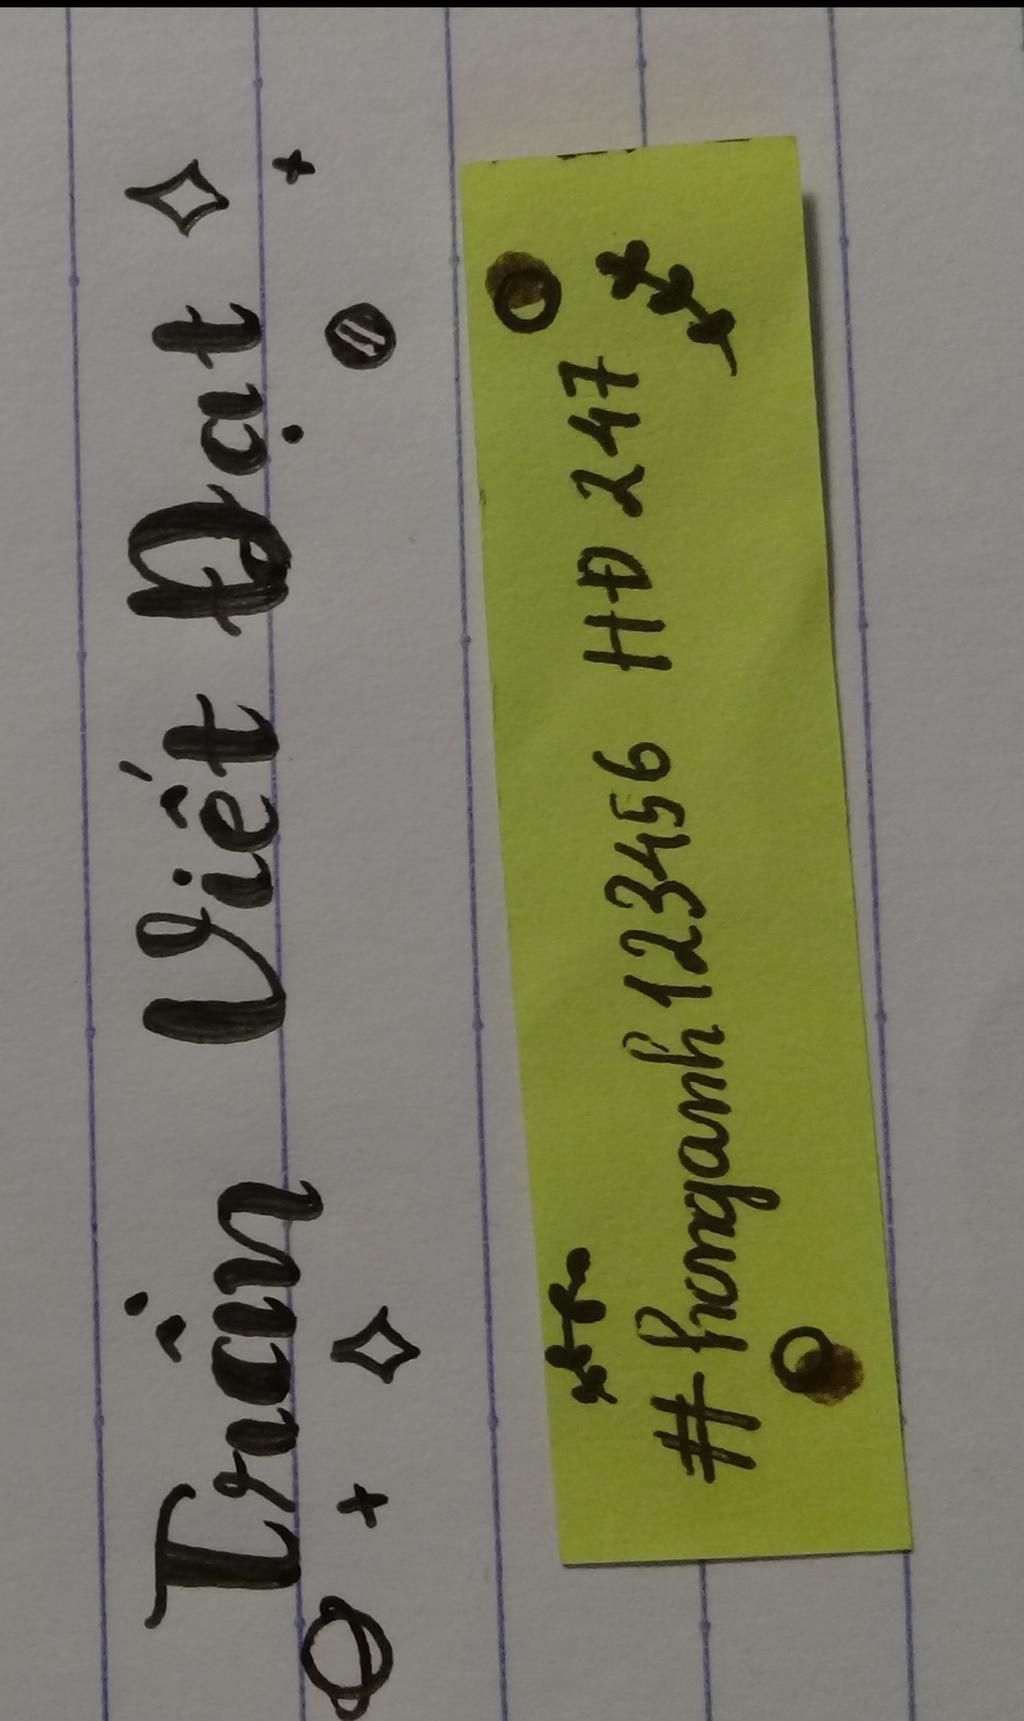 Trần Viết Đạt
#honganh123456 HD 247